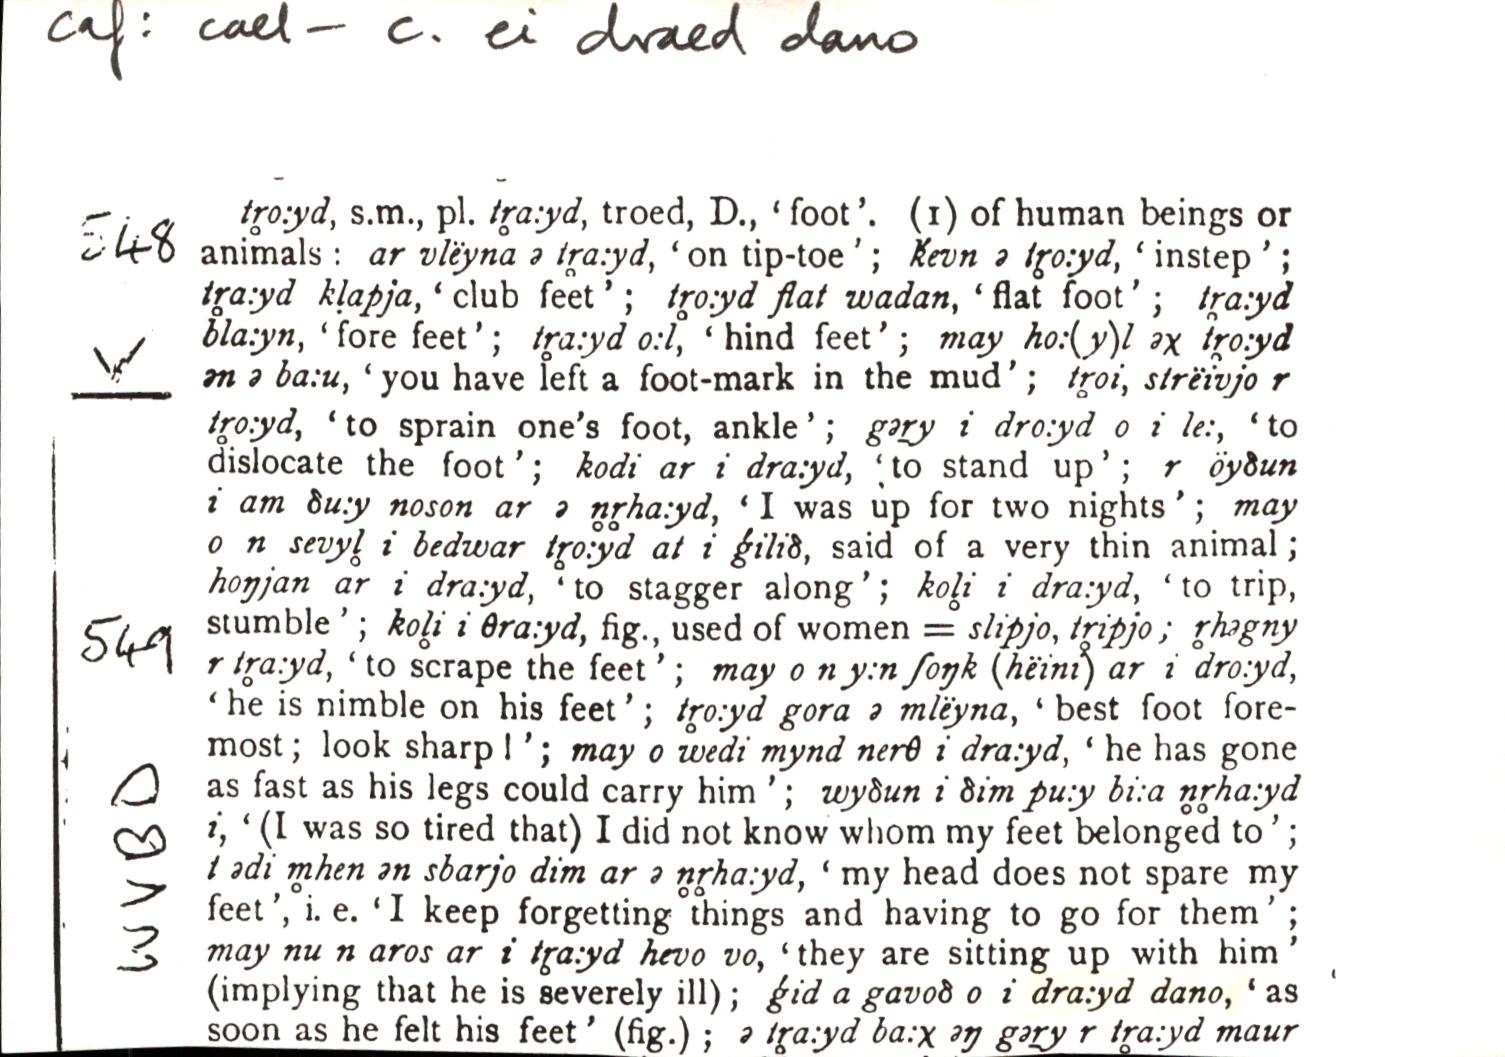 caf: cael – c. ei draed dano
548
tr̥o:yd, s.m., pl. tr̥a:yd, troed, D., ‘foot’. (1) of human beings or
animals : ar vlëyna ə tr̥a:yd, ‘on tip-toe’; ḱevn ə tr̥o:yd, ‘instep’;
tr̥a:yd kl̥apja, ‘club feet’; tr̥o:yd flat wadan, ‘flat foot’; tr̥a:yd
bla:yn, ‘fore feet’; tr̥a:yd o:l, ‘hind feet’; may ho:(y)l əχ tr̥o:yd
ən ə ba:u, ‘you have left a foot-mark in the mud’; tr̥oi, strëivjo r
tr̥o:yd, ‘to sprain one's foot, ankle’; gəry i dro:yd o i le:, ‘to
dislocate the foot’; kodi ar i dra:yd, ‘to stand up’; r öyðun
i am ðu:y noson ar ə n̥r̥ha:yd, ‘I was up for two nights’; may
o n sevyl̥ i bedwar tr̥o:yd at i ǵilið, said of a very thin animal;
hoŋjan ar i dra:yd, ‘to stagger along’; kol̥i i dra:yd, ‘to trip,
549
stumble’; kol̥i i θra:yd, fig., used of women = slipjo, tr̥ipjo; r̥həgny
r tr̥a:yd, ‘to scrape the feet’; may o n y:n ʃoŋk (hëini) ar i dro:yd,
‘he is nimble on his feet’; tr̥o:yd gora ə mlëyna, ‘best foot fore-
most; look sharp!’; may o wedi mynd nerθ i dra:yd, ‘he has gone
as fast as his legs could carry him’; wyðun i ðim pu:y bi:a n̥r̥ha:yd
i, ‘(I was so tired that) I did not know whom my feet belonged to’;
t ədi m̥hen ən sbarjo dim ar ə n̥r̥ha:yd, ‘my head does not spare my
feet’, i. e. ‘I keep forgetting things and having to go for them’;
may nu n aros ar i tr̥a:yd hevo vo, ‘they are sitting up with him’
(implying that he is severely ill); ǵid a gavoð o i dra:yd dano, ‘as
soon as he felt his feet’ (fig.); ə tr̥a:yd ba:χ əŋ gəry r tr̥a:yd maur
WVBD